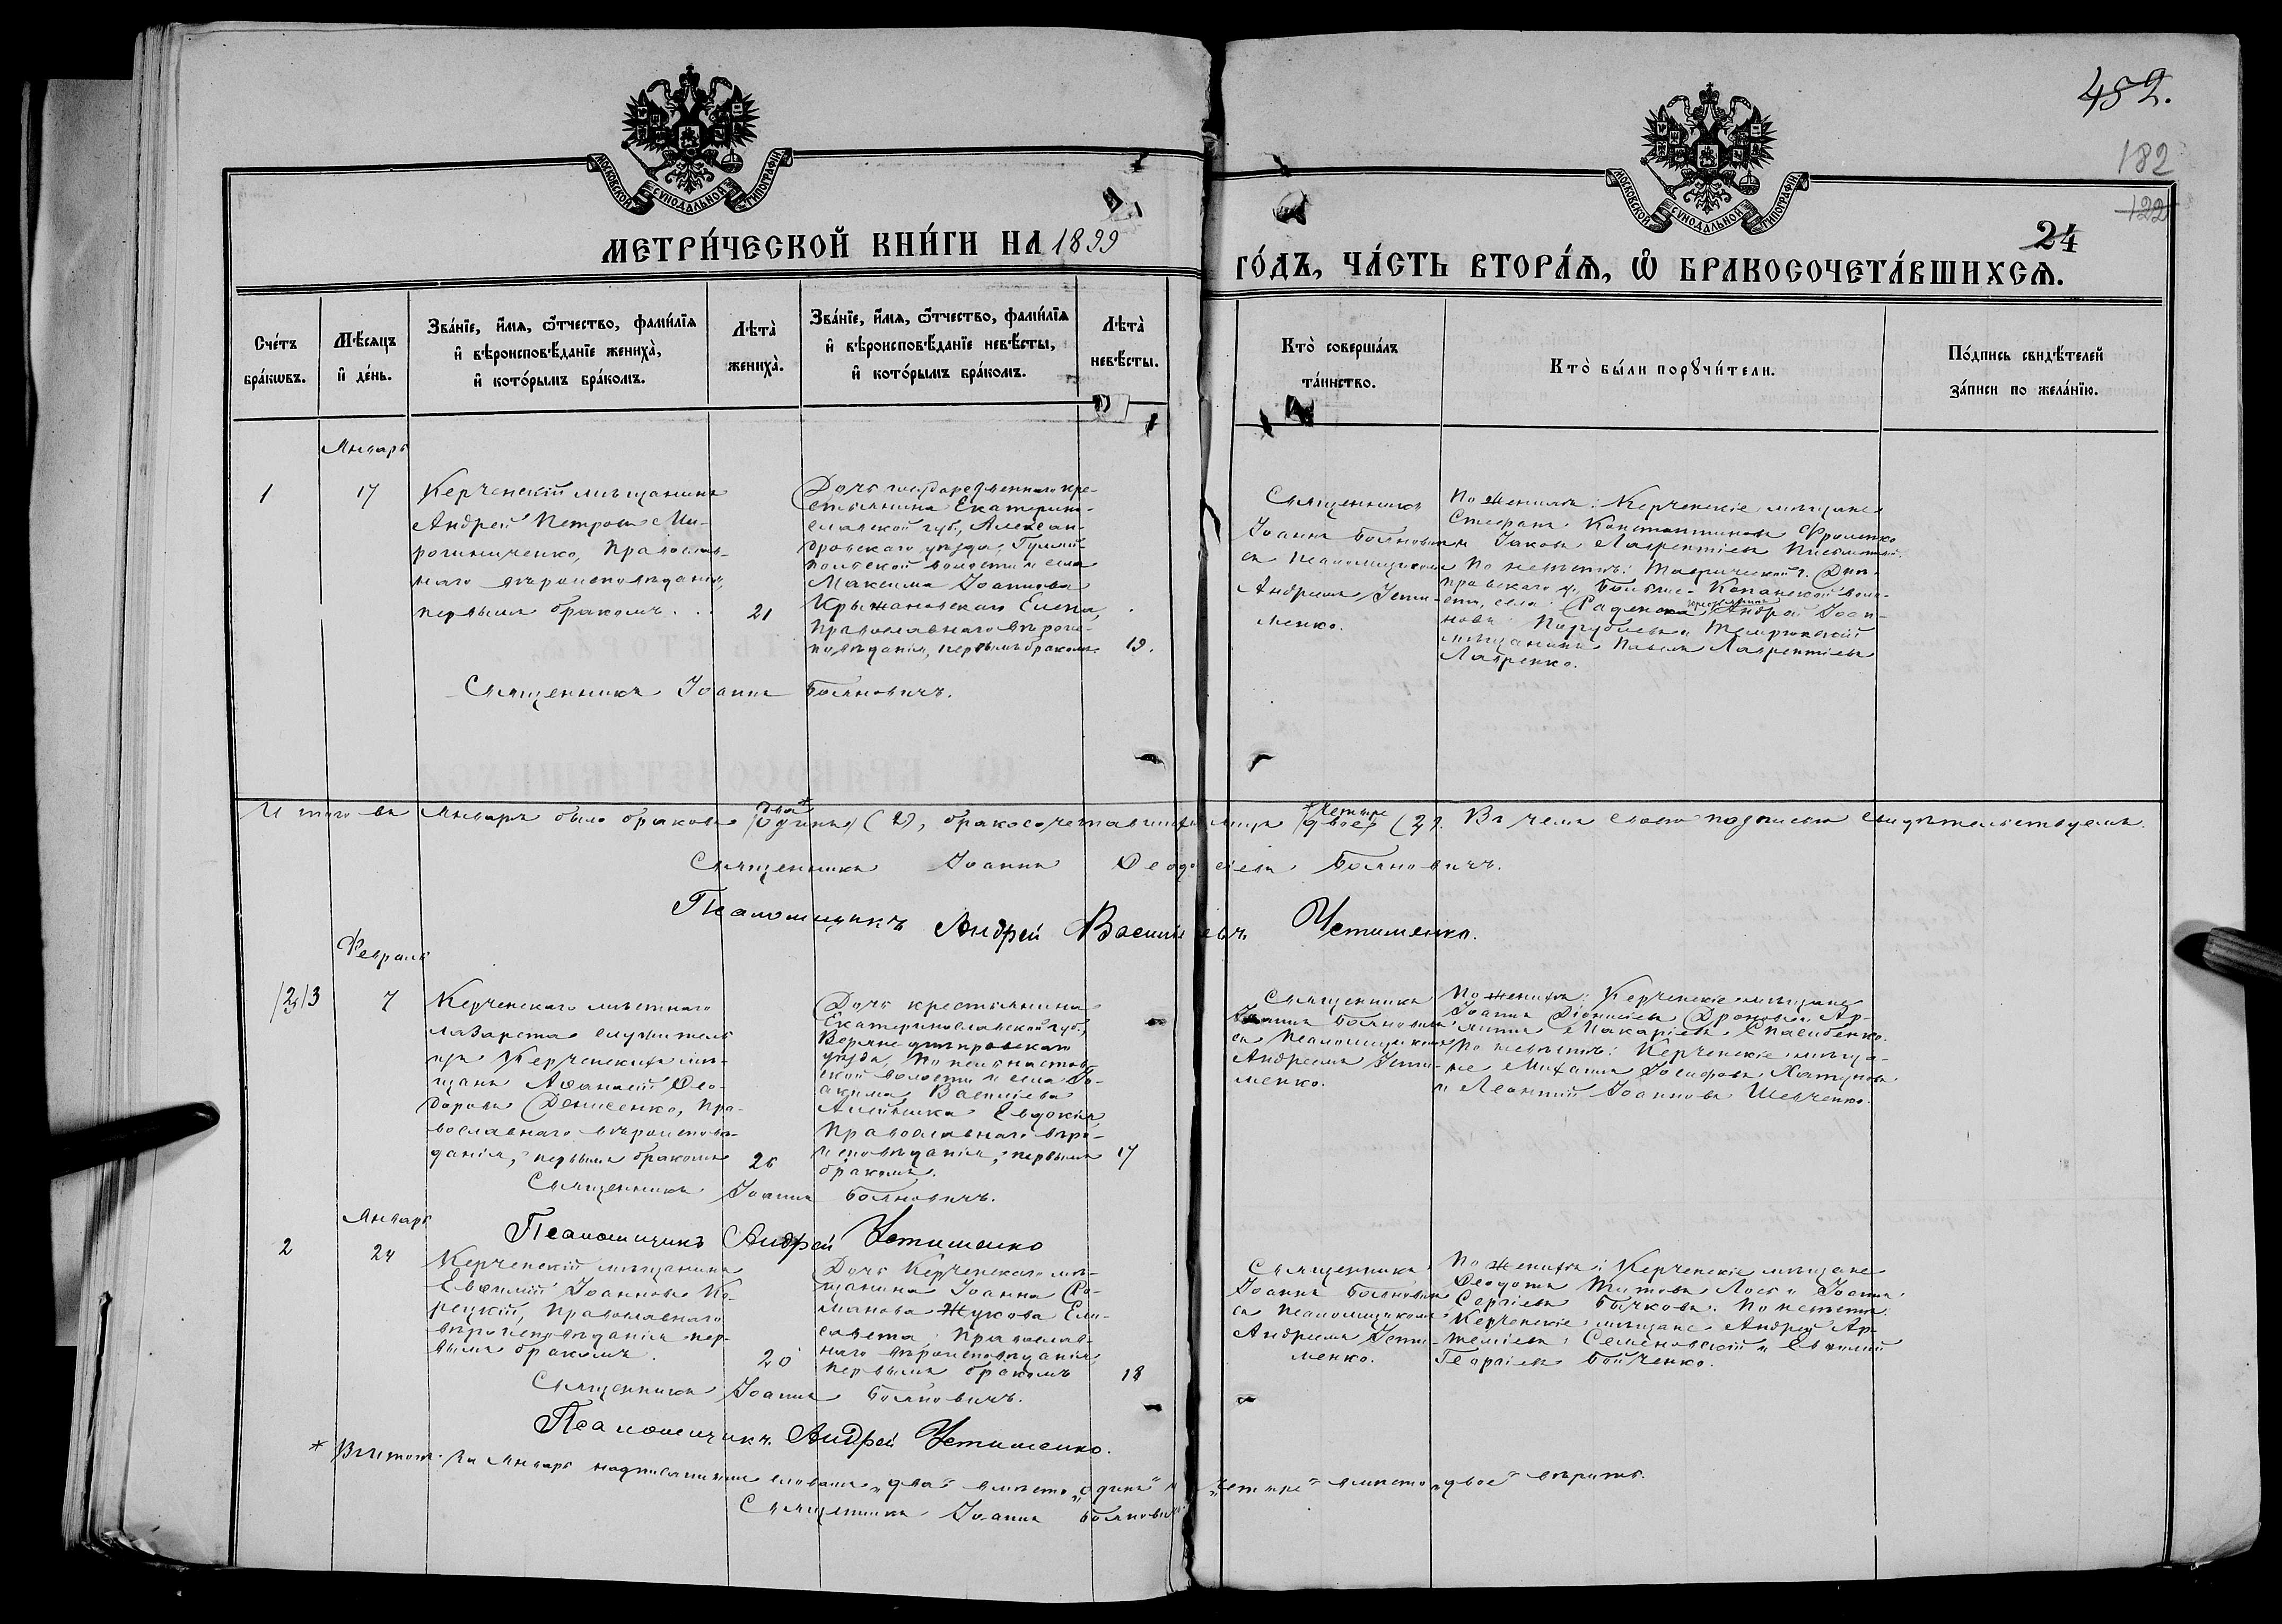 482.
182
122
24
МОСКОВСКОЙ СѴНОДАЛЬНОЙ ТИПОГРАФІИ
МОСКОВСКОЙ СѴНОДАЛЬНОЙ ТИПОГРАФІИ
МЕТРИ́ЧЕСКОЙ КНИ́ГИ НА 1899
ГО́ДЪ, ЧА́СТЬ ВТОРА́Ѧ, Ѽ БРАКОСОЧЕТА́ВШИХСѦ.
Сче́тъ
бра́кѡвъ.
Мѣ́сяцъ
и҆ де́нь.
Зва́нїе, и҆́мѧ, ѻ҆́тчество, фами́лїѧ
и҆ вѣроисповѣ́данїе жениха̀,
и҆ кото́рымъ бра́комъ.
Лѣта̀
жениха̀.
Зва́нїе, и҆́мѧ, ѻ҆́тчество, фами́лїѧ
и҆ вѣроисповѣ́данїе невѣ́сты,
и҆ кото́рымъ бра́комъ.
Лѣта̀
невѣ́сты.
Кто̀ соверша́лъ
та́инство.
Кто̀ бы́ли порꙋчи́тели.
По́дпись свидѣ́телей
за́писи по жела́нїю.
Январь
1
17
Керченскій мѣщанинъ
Андрей Петровъ Ми-
рошниченко, православ-
наго вѣроисповѣданія,
первымъ бракомъ. . .
21
Дочь государственнаго кре-
стьянина Екатерино-
славской губ., Алексан-
дровскаго уѣзда, Гуляй-
польской волости и села
Максима Іоаннова
Крыжановскаго Елена,
православнаго вѣроис-
повѣданія, первымъ бракомъ
19.
Священникъ
Іоаннъ Бояновичъ
съ псаломщикомъ
Андреемъ Усти-
менко.
По женихѣ: Керченскіе мѣщане
Стефанъ Константиновъ Фроленко
и Іаковъ Лаврентіевъ
По невѣстѣ: Таврической г. Днѣ-
провскаго у. Больше-Копанской воло-
сти, села Раденска крестьянинъ Андрей Іоан-
новъ и Темрюкскій
мѣщанинъ Павелъ Лаврентіевъ
Лавренко.
Священникъ Іоаннъ Бояновичъ.
Итого въ Январѣ было браковъ два* (одинъ) (2), бракосочетавшихся лицъ *четыре (двое) (2). Въ чемъ своею подписью свидѣтельствуемъ.
Священникъ Іоаннъ Ѳеодосіевъ Бояновичъ.
Псаломщикъ Андрей Васильевъ Устименко.
Февраль
/2/3
7
Керченскаго мѣстнаго
лазарета служитель
изъ Керченскихъ мѣ-
щанъ Аѳанасій Ѳео-
доровъ Денисенко, пра-
вославнаго вѣроисповѣ-
данія, первымъ бракомъ
26
Дочь крестьянина
Екатеринославской губ.,
Верхнеднѣпровскаго
уѣзда,
ской волости и села Іо-
акима Васильева
Алейника Евдокія,
православнаго вѣро-
исповѣданія, первымъ
бракомъ.
17
Священникъ
Іоаннъ Бояновичъ
съ псаломщикомъ
Андреемъ Усти-
менко.
По женихѣ: Керченскіе мѣщане
Іоаннъ Діонисіевъ
Макаріевъ Спасибенко.
По невѣстѣ: Керченскіе мѣща-
не Михаилъ Іосифовъ
и Леонтій Іоанновъ Шевченко.
Священникъ Іоаннъ Бояновичъ.
Псаломщикъ Андрей Устименко
Январь
2
24
Керченскій мѣщанинъ
Евѳимій Іоанновъ Ко-
рецкій, православнаго
вѣроисповѣданія пер-
вымъ бракомъ.
20
Дочь Керченскаго мѣ-
щанина Іоанна Ро-
манова Жукова Ели-
савета, православ-
наго вѣроисповѣданія,
первымъ бракомъ
18
Священникъ
Іоаннъ Бояновичъ
съ псаломщикомъ
Андреемъ Усти-
менко.
По женихѣ: Керченскіе мѣщане
Ѳеодотъ Титовъ Лоск и Іоаннъ
Сергіевъ Бычковъ. По невѣстѣ:
Керченскіе мѣщане Андрей Ар-
теміевъ Семеновскій и Евѳимій
Георгіевъ Бойченко.
Священникъ Іоаннъ Бояновичъ.
Псаломщикъ Андрей Устименко.
* Въ итогѣ за Январь надписаннымъ словамъ „два" вмѣсто „одинъ" и „четыре" вмѣсто „двое" вѣрить.
Священникъ Іоаннъ Бояновичъ